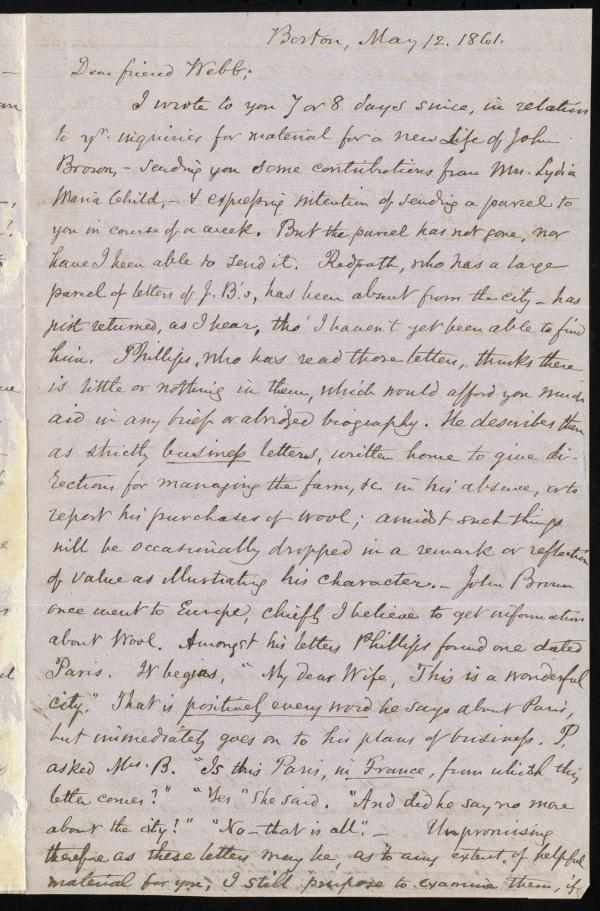 Boston, May 12. 1861.
Dear friend Webb;
I wrote to you 7 or 8 days since, in relation
to yr. inquiries for material for a new Life of John
Brown, - sending you some contributions from Mrs. Lydia
Maria Child, - & expressing intention of sending a parcel to
you in course of a week. But the parcel has not gone, nor
have I been able to send it. Redpath, who has a large
parcel of letters of J. B.'s, has been absent from the city - has
just returned, as I hear, tho' I haven't yet been able to find
him. Phillips, who has read those letters, thinks there
is little or nothing in them, which would afford you much
aid in any brief or abridged biography. He describes them
as strictly business letters, written home to give di-
rections for managing the farm, &c. in his absence, or to
report his purchases of wool; amidst such things
will be occasionally dropped in a remark or reflection
of value as illustrating his character. - John Brown
once went to Europe, chiefly I believe to get information
about Wool. Amongst his letters Phillips found one dated
Paris. It begins, "My dear Wife, This is a wonderful
city." That is positively every word he says about Paris,
but immediately goes on to his plans of business. P.
asked Mrs. B. "Is this Paris, in France, from which this
letter comes?" "Yes" she said. "And did he say no more
about the city?" "No - that is all." - Unpromising
therefore as these letters may be, as to any extent of helpful
material for you, I still propose to examine them, if